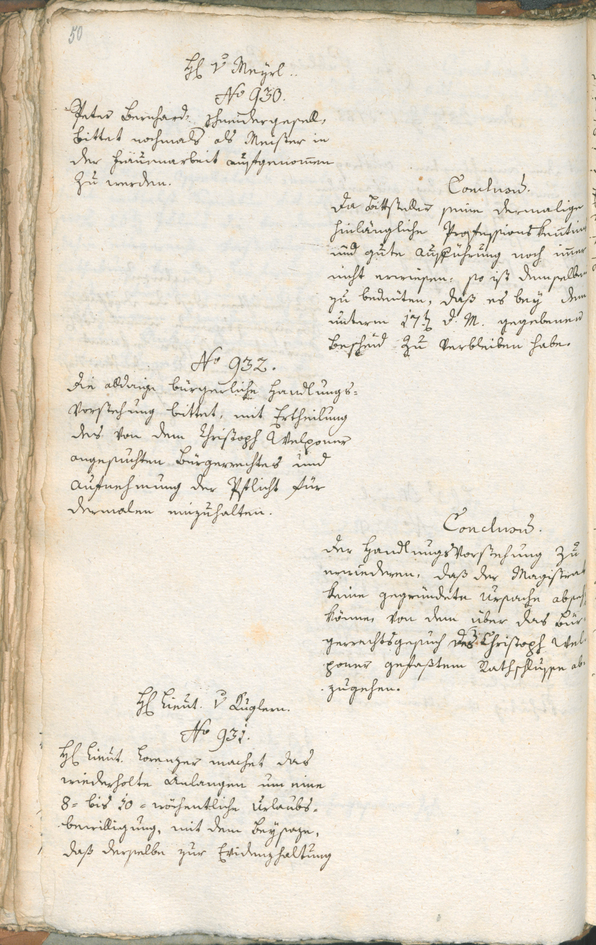 50
H. v Meyrl..
No 930.
Peter Bernhard, Schneidergesell,
bittet nochmals als Meister in
der Frauenarbeit aufgenommen
zu werden.
Conclusum.
Da Bittsteller seine dermalige
hinlängliche Professionskenntniß
und gute Aufführung noch immer
nicht erwiesen, so ist demselben
zu bedeuten, daß es bey dem
unterm 17ten d. M. gegebenen
Bescheid zu verbleiben habe.
No 932.
Die allhiesige bürgerliche Handlungs-
vorstehung bittet, mit Ertheilung
des von dem Christoph Welponer
angesuchten Bürgerrechtes und
Aufnehmung der Pflicht für
dermalen einzuhalten.
Conclusum.
Der Handlungsvorstehung zu
erwiedern, daß der Magistrat
keine gegründete Ursache
könne, von dem über das Bür-
gerrechtsgesuch des Christoph Wel-
poner gefaßtem Rathschlusse ab-
zugehen.
H. Lieut. v Kuglern.
No 931.
H. Lieut. Lorenzer machet das
wiederholte Anlangen um eine
8- bis 10-wöchentliche Urlaubs-
bewilligung, mit dem Beysaze,
daß derselbe zur Evidenzhaltung